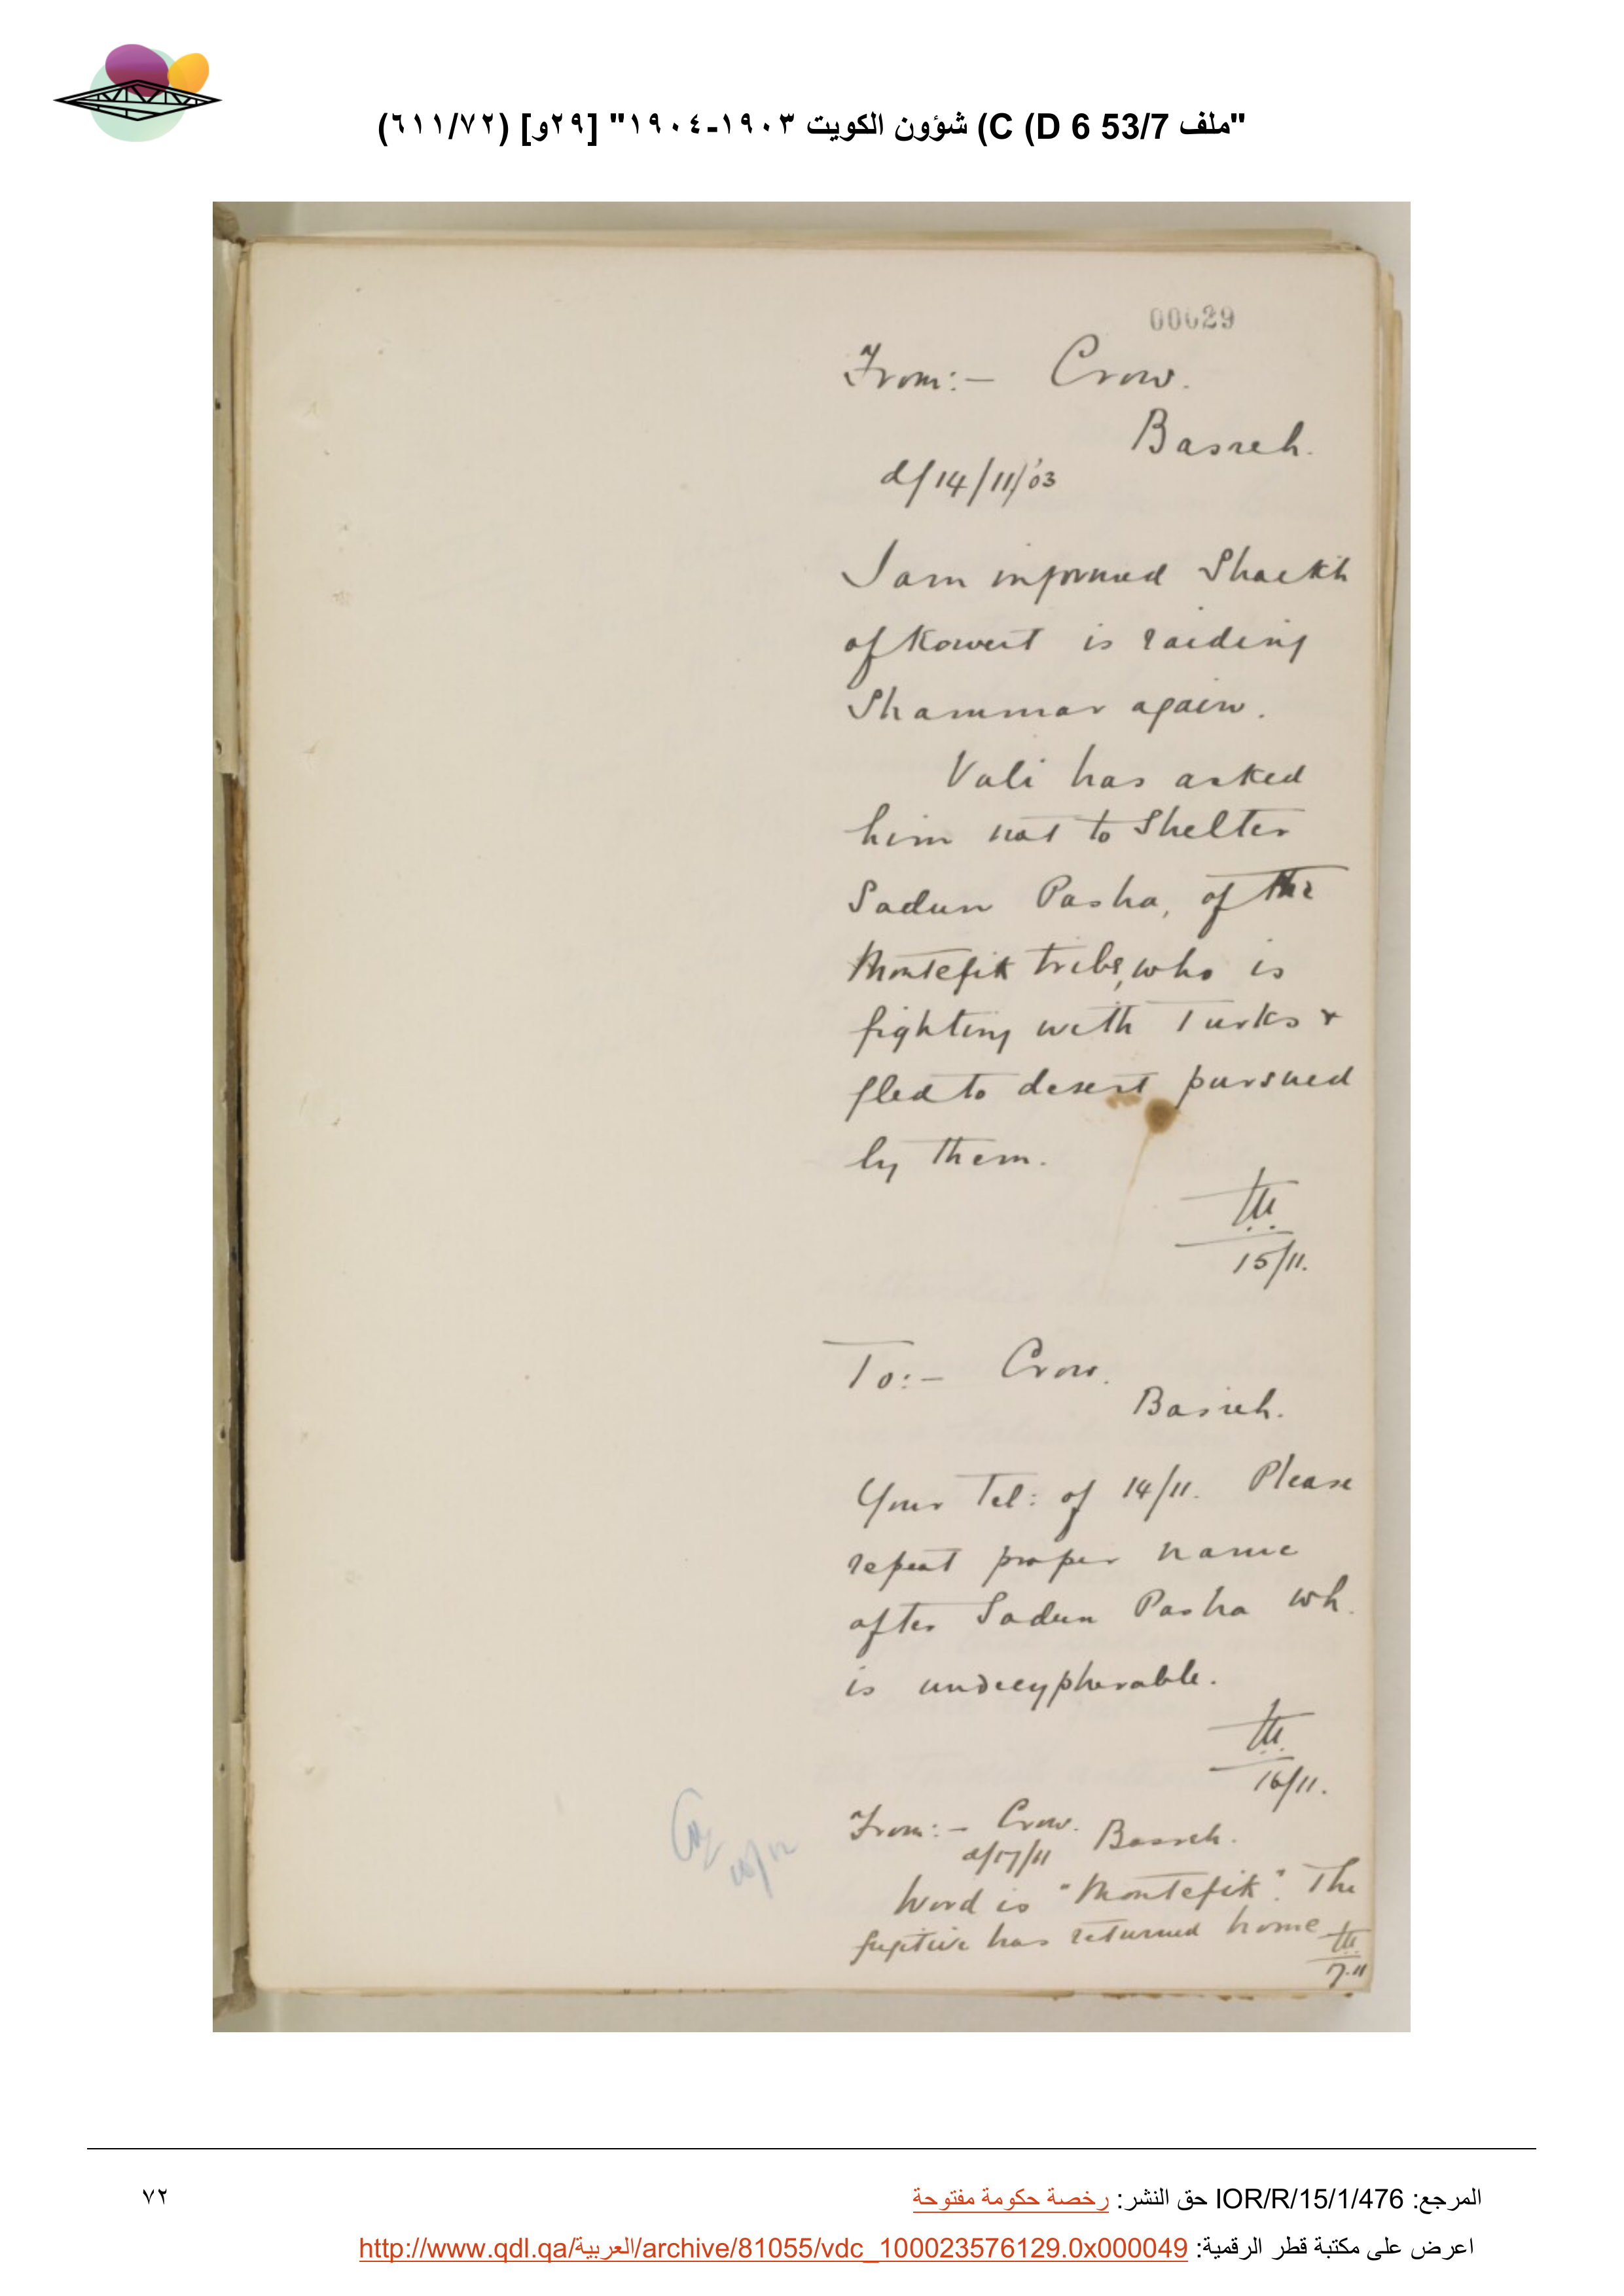 "ملف 53/7 D 6) C) شؤون الكويت ١٩٠٣-١٩٠٤" [٢٩و] (٦١١/٧٢)
00029
From:- Crow.
Basreh.
d/14/11/'03
I am informed Shaekh
of Koweit is raiding
Shammar again.
Vali has asked
him not to Shelter
Sadun Pasha, of the
Montefik tribe, who is
fighting with Turks &
fled to desert pursued
by them.
15/11.
To:- Crow.
Basreh.
Your Tel: of 14/11. Please
repeat proper name
after Sadun Pasha wh.
is undecypherable.
16/11.
From:- Crow. Basreh.
d/17/11
Word is "Montefik". The
fugitive has returned home
المرجع: IOR/R/15/1/476 حق النشر: رخصة حكومة مفتوحة
٧٢
اعرض على مكتبة قطر الرقمية: http://www.qdl.qa/العربية/archive/81055/vdc_100023576129.0x000049